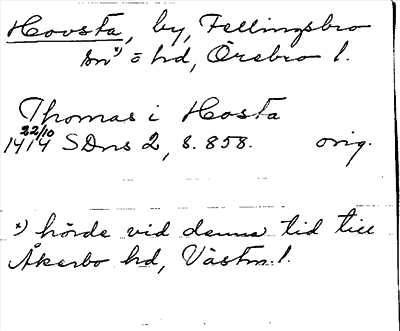 Hovsta, by, Fellingsbro
sn x) o hd, Örebro l.
Thomas i Hosta
22/10
1414 SDns 2, s. 858. orig.
x) hörde vid denna tid till
Åkerbo hd, Västm. l.